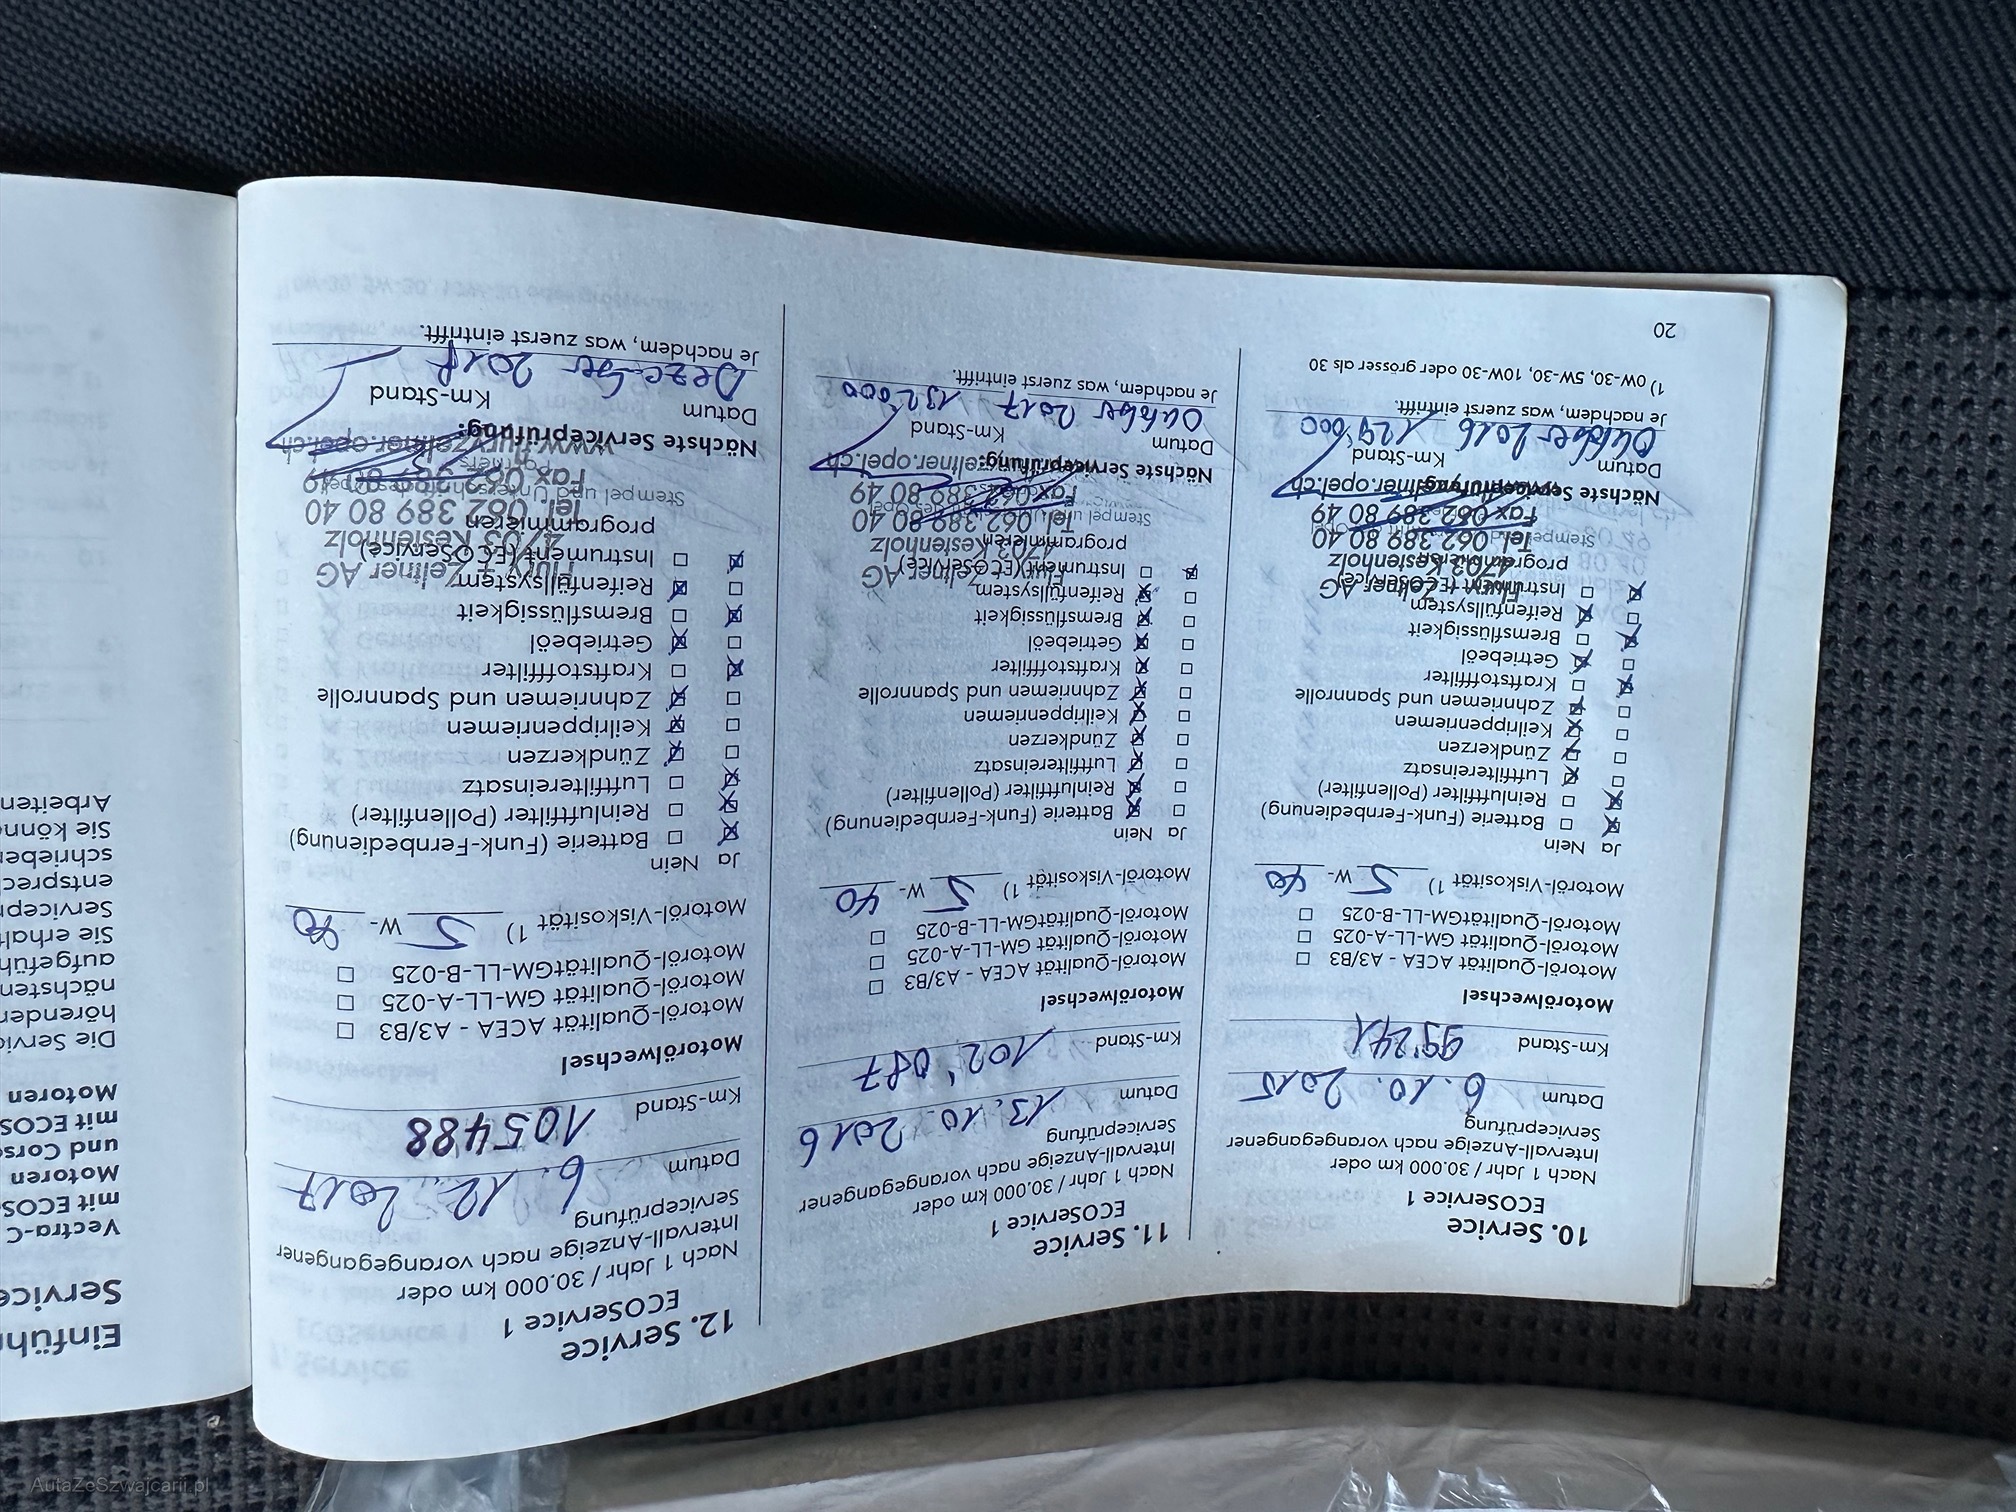 10. Service
ECOService 1
Nach 1 Jahr / 30.000 km oder
Intervall-Anzeige nach vorangegangener
Serviceprüfung
Datum 6. 10. 2015
Km-Stand 99'241
Motorölwechsel
Motoröl-Qualität ACEA - A3/B3 □
Motoröl-Qualität GM-LL-A-025 □
Motoröl-QualitätGM-LL-B-025 □
Motoröl-Viskosität 1) 5 W- 40
Ja Nein
☒ □ Batterie (Funk-Fernbedienung)
☒ □ Reinluftfilter (Pollenfilter)
□ ☒ Luftfiltereinsatz
□ ☒ Zündkerzen
□ ☒ Keilrippenriemen
□ ☒ Zahnriemen und Spannrolle
☒ □ Kraftstofffilter
□ ☒ Getriebeöl
☒ □ Bremsflüssigkeit
□ ☒ Reifenfüllsystem
☒ □ Instrument (ECOService)
programmieren
Flury + Zeltner AG
4703 Kestenholz
Tel. 062 389 80 40
Fax 062 389 80 49
Nächste Serviceprüfung:
Datum Km-Stand
Oktober 2016 129'000
Je nachdem, was zuerst eintrifft.
1) 0W-30, 5W-30, 10W-30 oder grösser als 30
20
11. Service
ECOService 1
Nach 1 Jahr / 30.000 km oder
Intervall-Anzeige nach vorangegangener
Serviceprüfung
Datum 13. 10. 2016
Km-Stand 102'087
Motorölwechsel
Motoröl-Qualität ACEA - A3/B3 □
Motoröl-Qualität GM-LL-A-025 □
Motoröl-QualitätGM-LL-B-025 □
Motoröl-Viskosität 1) 5 W- 40
Ja Nein
□ ☒ Batterie (Funk-Fernbedienung)
□ ☒ Reinluftfilter (Pollenfilter)
□ ☒ Luftfiltereinsatz
□ ☒ Zündkerzen
□ ☒ Keilrippenriemen
□ ☒ Zahnriemen und Spannrolle
□ ☒ Kraftstofffilter
□ ☒ Getriebeöl
□ ☒ Bremsflüssigkeit
□ ☒ Reifenfüllsystem
☒ □ Instrument (ECOService)
programmieren
Flury + Zeltner AG
4703 Kestenholz
Tel. 062 389 80 40
Fax 062 389 80 49
Nächste Serviceprüfung:
Datum Km-Stand
Oktober 2017 132'000
Je nachdem, was zuerst eintrifft.
12. Service
ECOService 1
Nach 1 Jahr / 30.000 km oder
Intervall-Anzeige nach vorangegangener
Serviceprüfung
Datum 6. 12. 2017
Km-Stand 105488
Motorölwechsel
Motoröl-Qualität ACEA - A3/B3 □
Motoröl-Qualität GM-LL-A-025 □
Motoröl-QualitätGM-LL-B-025 □
Motoröl-Viskosität 1) 5 W- 40
Ja Nein
☒ □ Batterie (Funk-Fernbedienung)
☒ □ Reinluftfilter (Pollenfilter)
☒ □ Luftfiltereinsatz
□ ☒ Zündkerzen
□ ☒ Keilrippenriemen
□ ☒ Zahnriemen und Spannrolle
☒ □ Kraftstofffilter
□ ☒ Getriebeöl
☒ □ Bremsflüssigkeit
□ ☒ Reifenfüllsystem
☒ □ Instrument (ECOService)
programmieren
Flury + Zeltner AG
4703 Kestenholz
Tel. 062 389 80 40
Fax 062 389 80 49
www.fluryzeltner.opel.ch
Nächste Serviceprüfung:
Datum Km-Stand
Dezember 2018
Je nachdem, was zuerst eintrifft.
Einfüh
Service
Vectra-C
mit ECOS
Motoren
und Cors
mit ECOS
Motoren
Die Servic
hörenden
nächsten
aufgefüh
Sie erhalt
Servicepr
entsprec
schrieben
Sie könne
Arbeiten
AutaZeSzwajcarii.pl